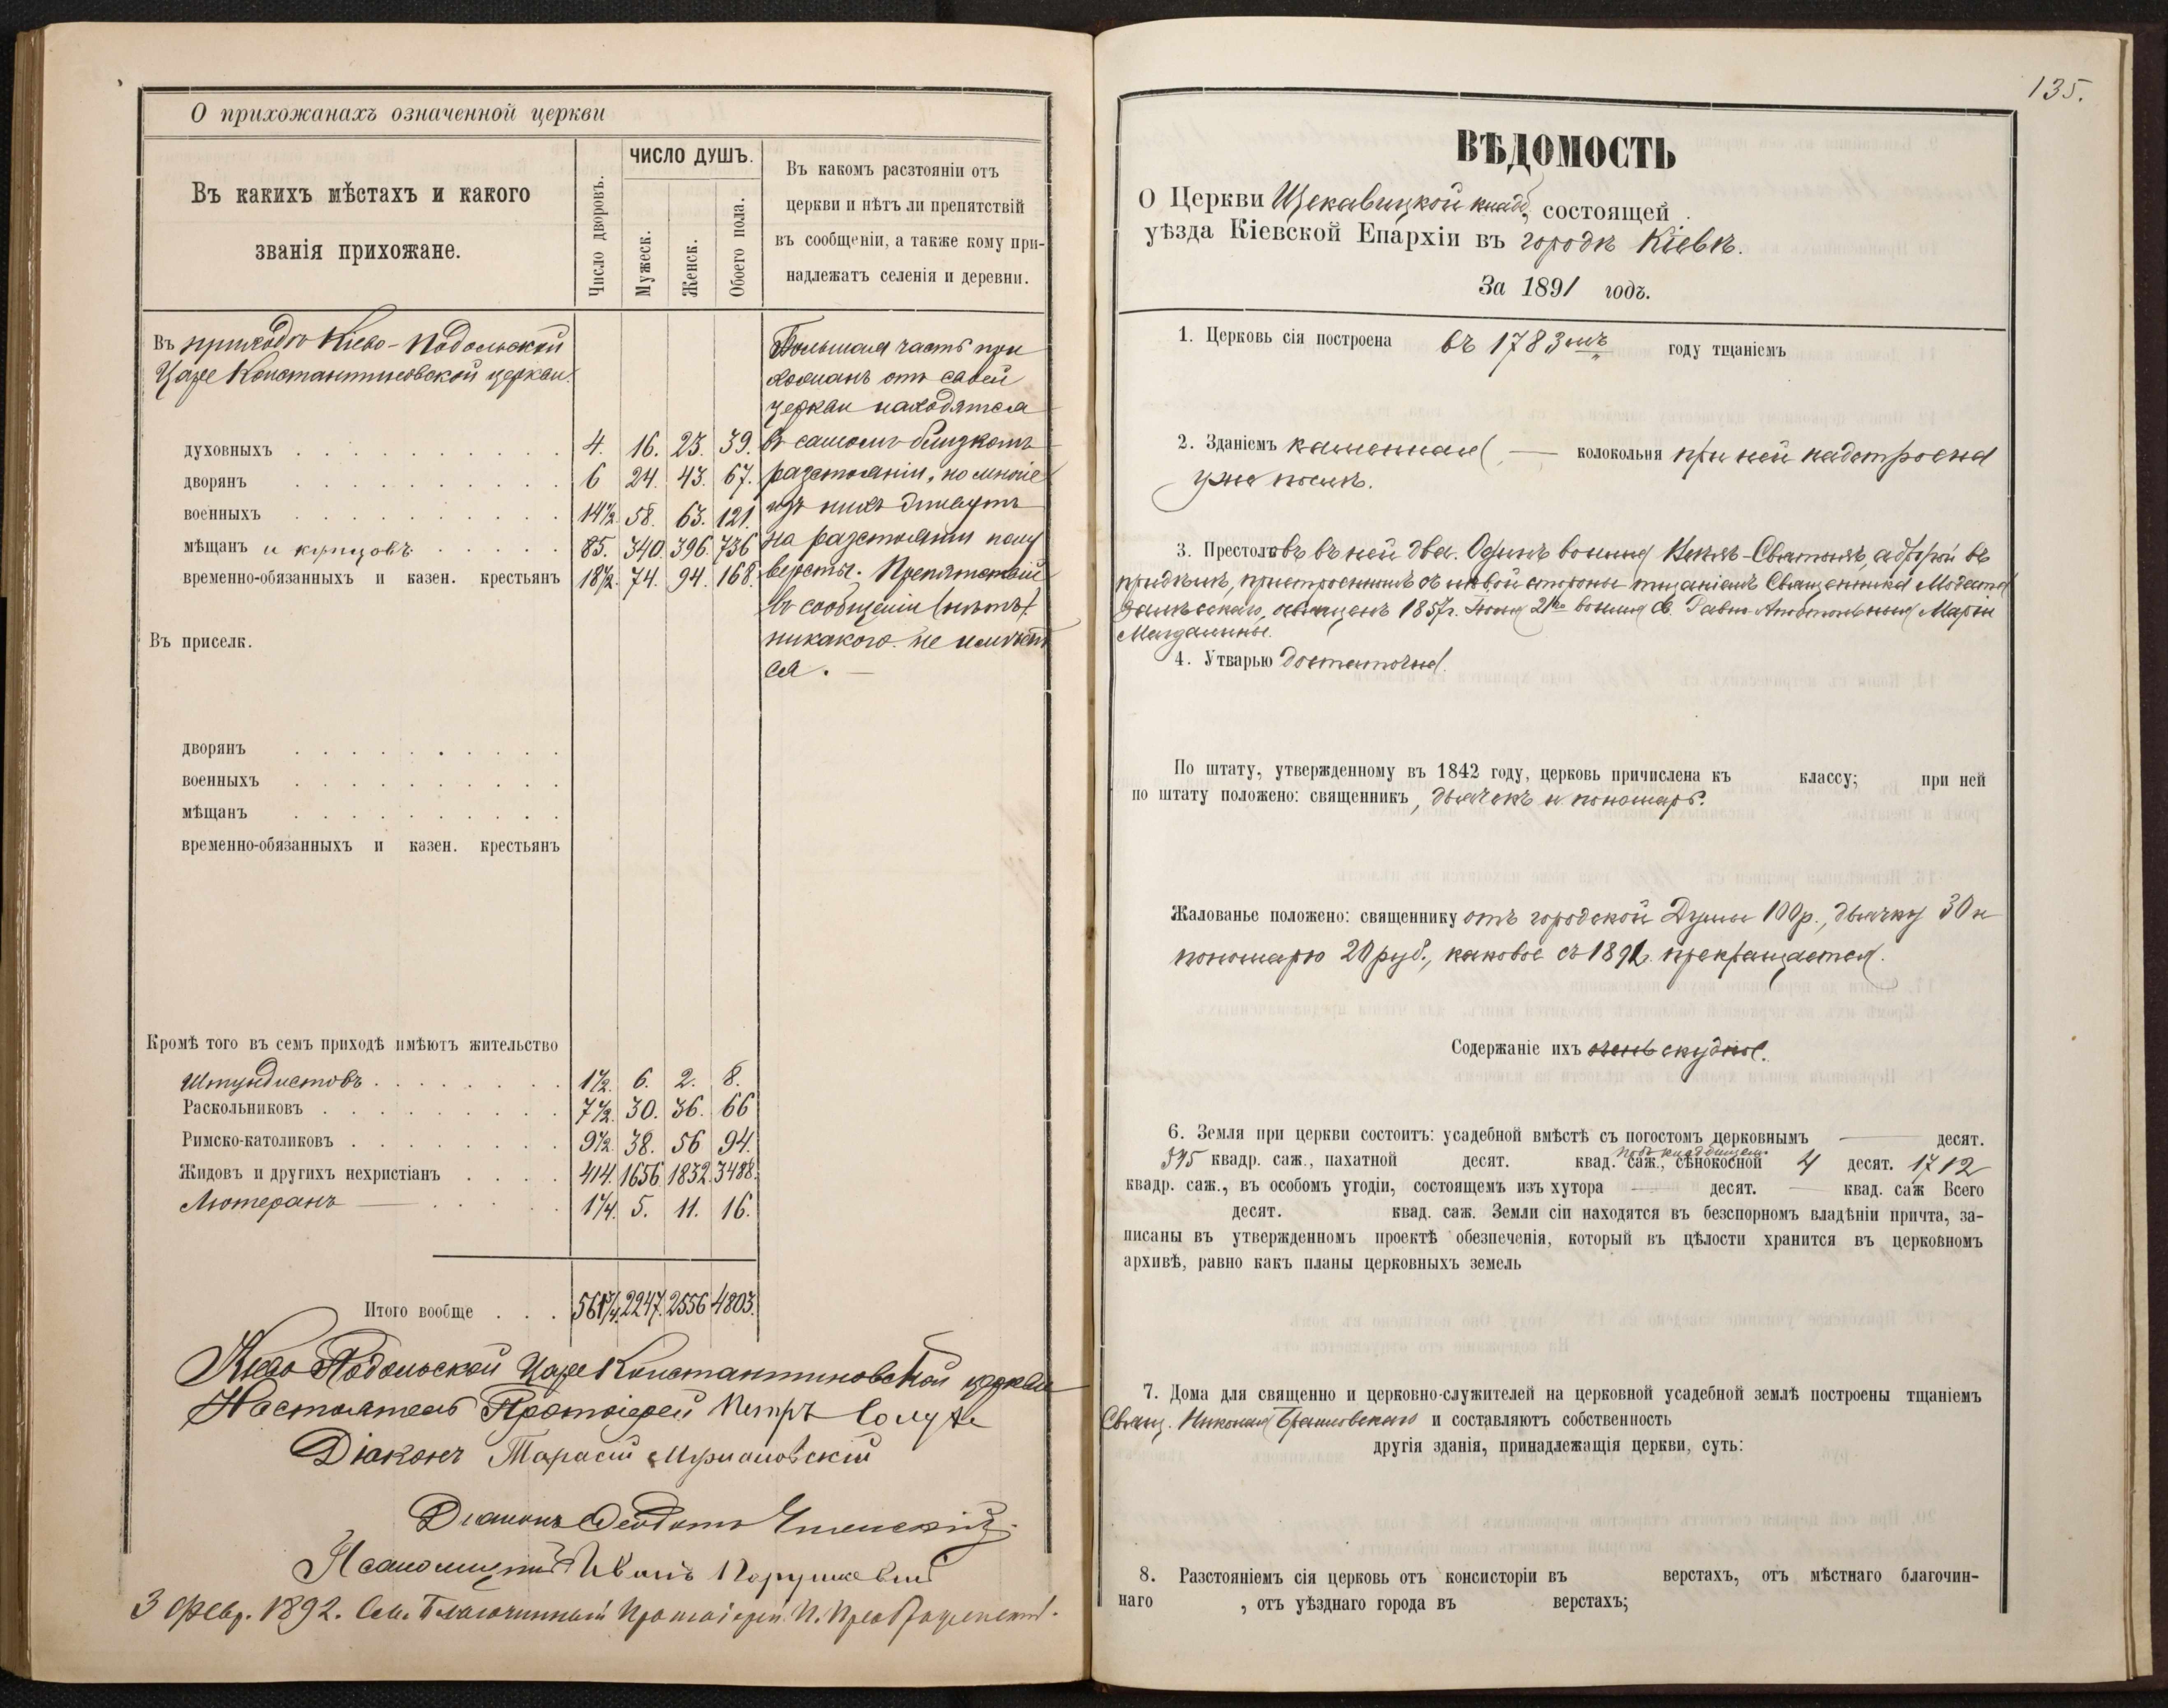 О прихожанахъ означенной церкви
Въ какихъ мѣстахъ и какого
званія прихожане.
Число дворовъ.
ЧИСЛО ДУШЪ.
Мужеск.
Женск.
Обоего пола.
Въ какомъ разстояніи отъ
церкви и нѣтъ ли препятствій
въ сообщеніи, а также кому при-
надлежатъ селенія и деревни.
Въ приходѣ Кіево-Подольской
Царе Константиновской церкви.
духовныхъ . . . 4. 16. 23. 39.
дворянъ . . . 6 24. 43. 67.
военныхъ . . . 14½ 58. 63. 121.
мѣщанъ и купцовъ . . . 85. 340. 396. 736
временно-обязанныхъ и казен. крестьянъ 18½. 74. 94. 168.
Большая часть при
хожанъ отъ своей
церкви находятся
въ самомъ близкомъ
разстояніи, но многіе
изъ нихъ живутъ
на разстояніи полу
версты. Препятствій
въ сообщеніи (нѣтъ)
никакого не имѣет
ся. —
Въ приселк.
дворянъ . . .
военныхъ . . .
мѣщанъ . . .
временно-обязанныхъ и казен. крестьянъ
Кромѣ того въ семъ приходѣ имѣютъ жительство
Штундистовъ . . . 1½. 6. 2. 8.
Раскольниковъ . . . 7½. 30. 36. 66
Римско-католиковъ . . . 9½. 38. 56 94.
Жидовъ и другихъ нехристіанъ . . . 414. 1656 1832. 3488.
Лютеранъ — . . . 1¼. 5. 11. 16.
Итого вообще . . . 561¾. 2247. 2556 4803.
Кіево Подольской Царе Константиновской церкви
Настоятель Протоіерей Петръ
Діаконъ Тарасій
Діаконъ Феодотъ
Псаломщикъ Иванъ
3 Февр. 1892. Благочинный Протоіерей П. Преображенскій.
135.
ВѢДОМОСТЬ
О Церкви Щекавицкой кладб., состоящей
уѣзда Кіевской Епархіи въ городѣ Кіевѣ.
За 1891 годъ.
1. Церковь сія построена въ 1783мъ году тщаніемъ
2. Зданіемъ каменная, — колокольня при ней надстроена
уже послѣ.
3. Престоловъ въ ней два. Одинъ во имя Всѣхъ-Святыхъ, а другой въ
придѣлѣ, пристроенномъ съ лѣвой стороны тщаніемъ Священника
освященъ 1857г. Іюня 2го во имя св. Равно-Апостольныя Маріи
Магдалины.
4. Утварью достаточна.
По штату, утвержденному въ 1842 году, церковь причислена къ классу; при ней
по штату положено: священникъ, дьячекъ и пономарь.
Жалованье положено: священнику отъ городской Думы 100р., дьячку 30 и
пономарю 20 руб., каковое съ 1892. прекращается.
Содержаніе ихъ очень скудное.
6. Земля при церкви состоитъ: усадебной вмѣстѣ съ погостомъ церковнымъ — десят.
345 квадр. саж., пахатной десят. квад. саж., сѣнокосной подъ кладбищемъ 4 десят. 1712
квадр. саж., въ особомъ угодіи, состоящемъ изъ хутора — десят. — квад. саж Всего
десят. квад. саж. Земли сіи находятся въ безспорномъ владѣніи причта, за-
писаны въ утвержденномъ проектѣ обезпеченія, который въ цѣлости хранится въ церковномъ
архивѣ, равно какъ планы церковныхъ земель
7. Дома для священно и церковно-служителей на церковной усадебной землѣ построены тщаніемъ
Свящ. Николая и составляютъ собственность
другія зданія, принадлежащія церкви, суть:
8. Разстояніемъ сія церковь отъ консисторіи въ верстахъ, отъ мѣстнаго благочин-
наго , отъ уѣзднаго города въ верстахъ;